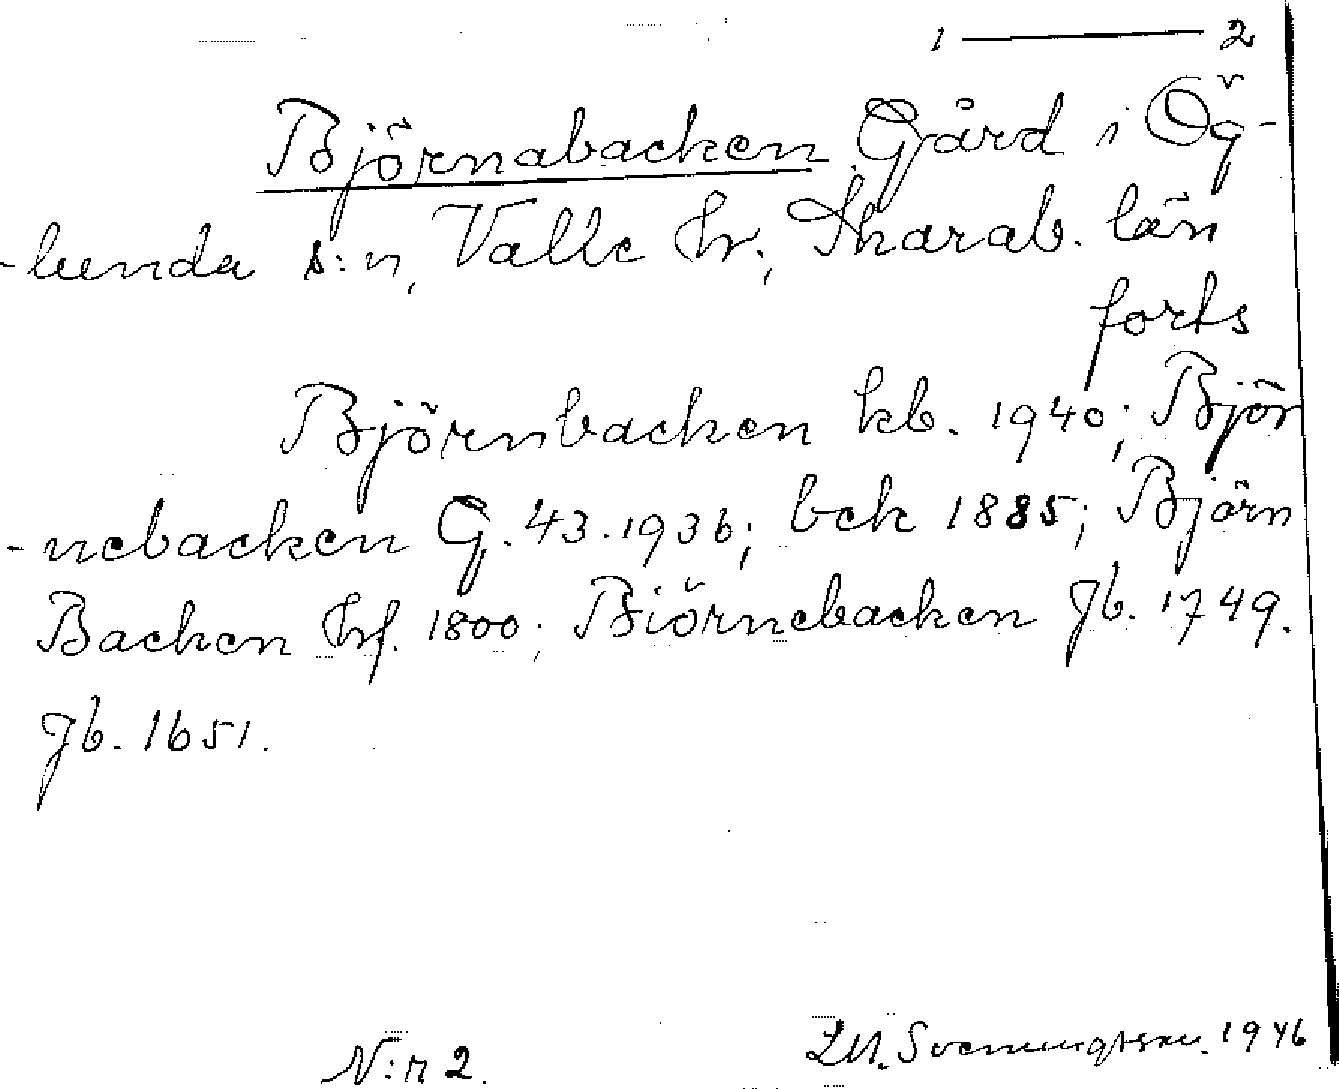 1 —— 2
Björnabacken Gård i Ög-
-lunda s:n, Valle hr., Skarab. län
forts
Björnbacken kb. 1940; Björ
-nebacken G. 43. 1936; bek 1885; Björn
Backen hf. 1800; Biörnebacken Jb. 1749.
Jb. 1651.
N:r 2. Sveningsson. 1946